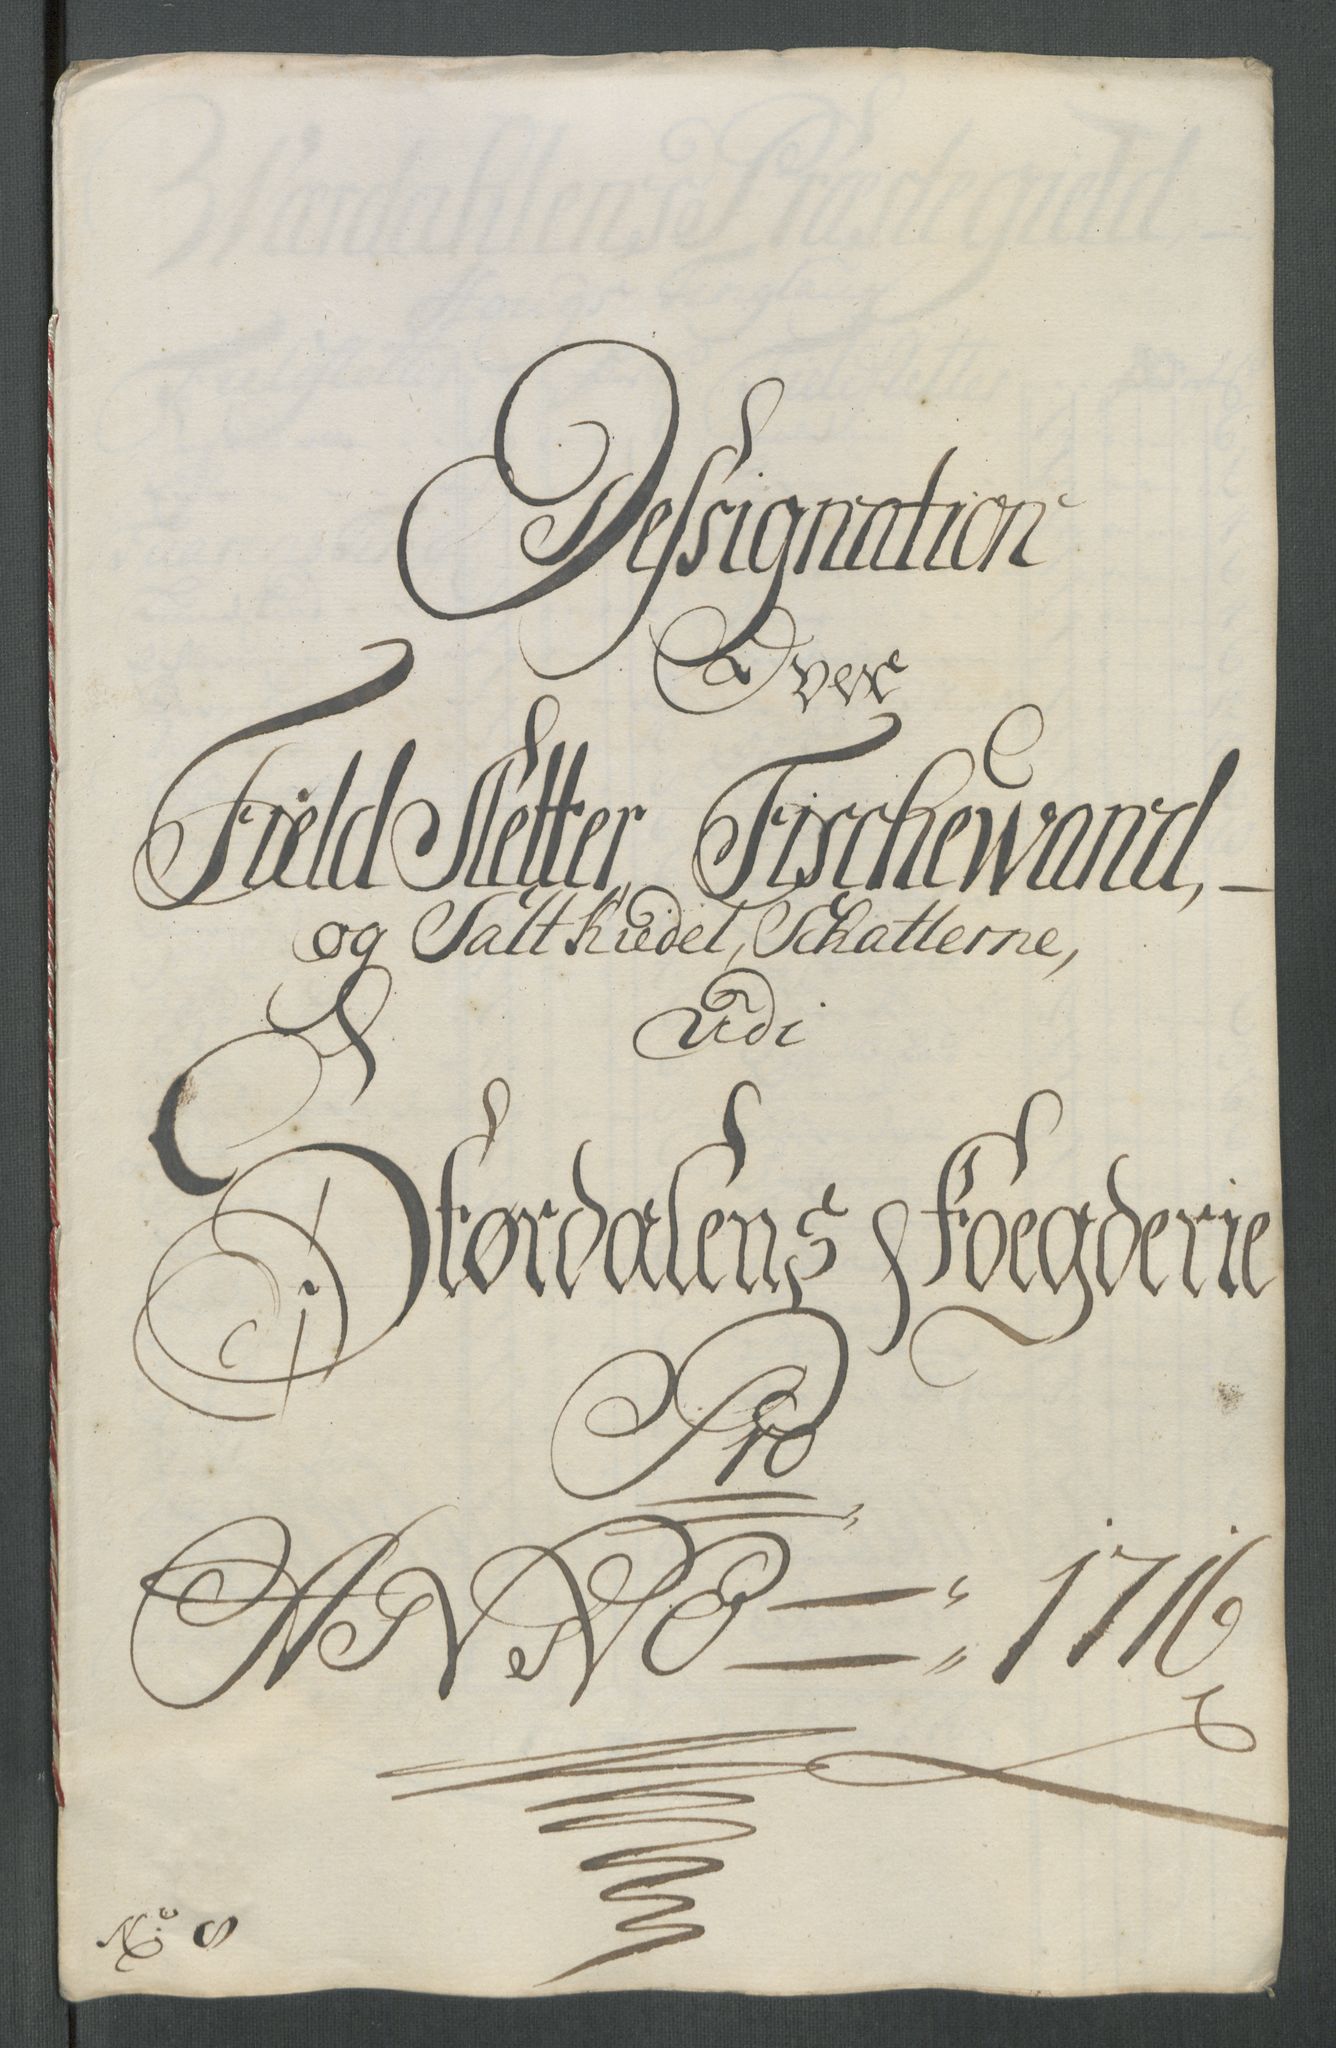 Dessignation
Over
Field Sletter, Fischewand, –
og Saltkiedel, Schatterne,
Udi
Størdalens Foegderie
Pro
ANNO = 1716
No 8